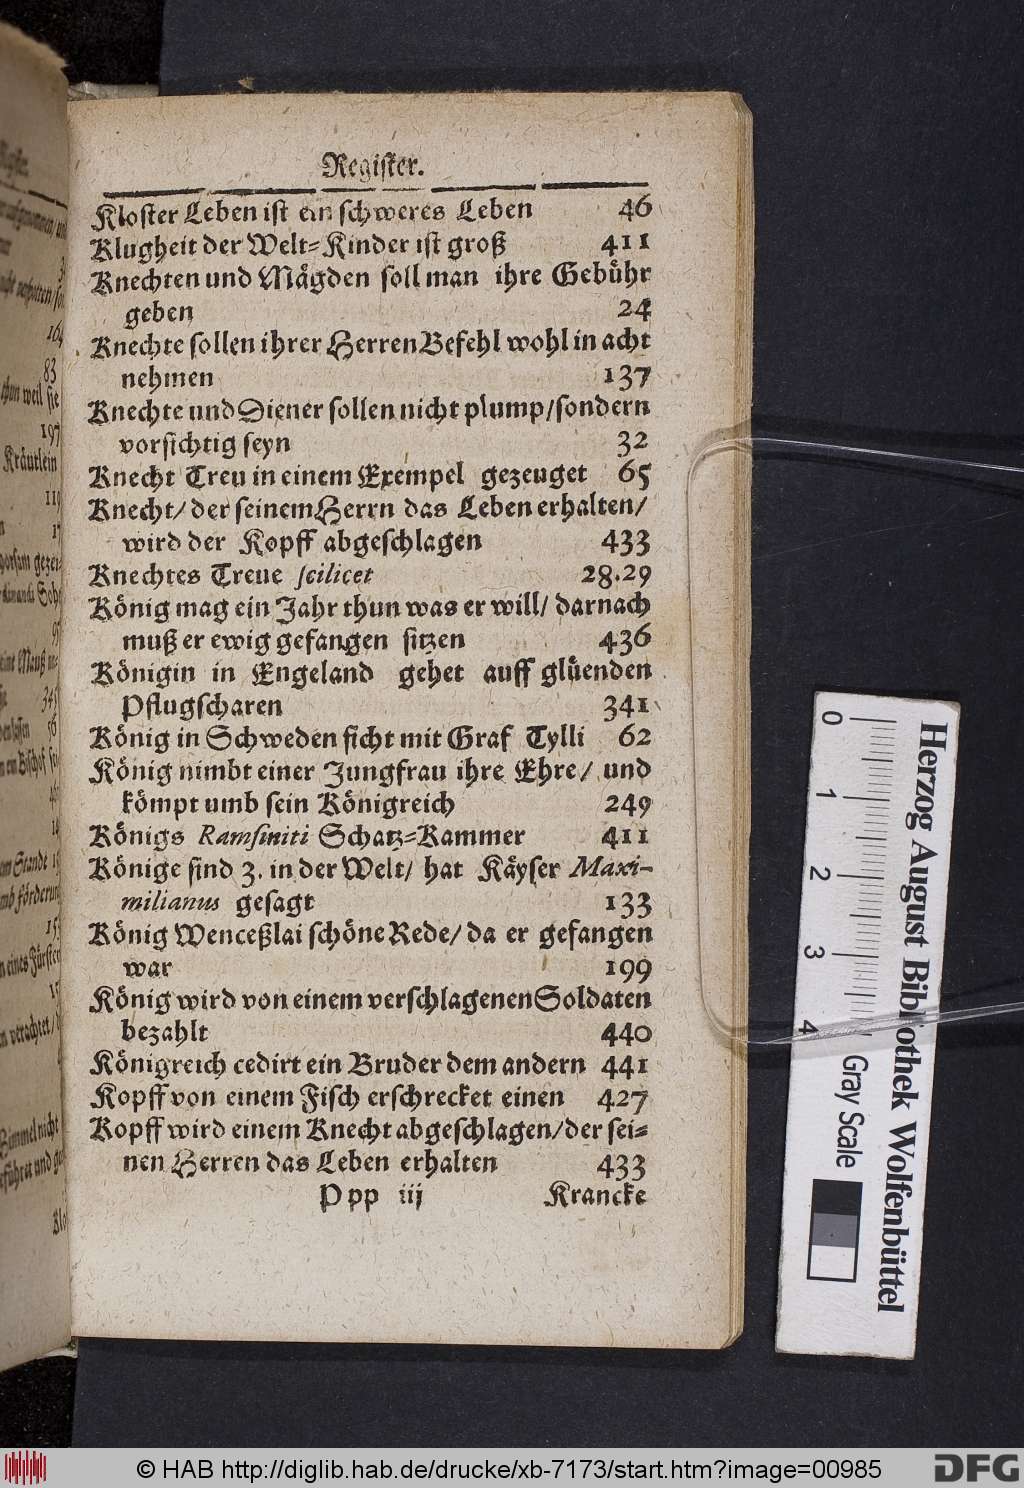 Register.
Kloster Leben ist ein schweres Leben 46
Klugheit der Welt=Kinder ist groß 411
Knechten und Mägden soll man ihre Gebühr
geben 24
Knechte sollen ihrer Herren Befehl wohl in acht
nehmen 137
Knechte und Diener sollen nicht plump/sondern
vorsichtig seyn 32
Knecht Treu in einem Exempel gezeuget 65
Knecht/ der seinem Herrn das Leben erhalten/
wird der Kopff abgeschlagen 433
Knechtes Treue scilicet 28.29
König mag ein Jahr thun was er will/ darnach
muß er ewig gefangen sitzen 436
Königin in Engeland gehet auff glüenden
Pflugscharen 341
König in Schweden ficht mit Graf Tylli 62
König nimbt einer Jungfrau ihre Ehre/ und
kömpt umb sein Königreich 249
Königs Ramsiniti Schatz=Kammer 411
Könige sind 3. in der Welt/ hat Käyser Maxi-
milianus gesagt 133
König Wenceßlai schöne Rede/ da er gefangen
war 199
König wird von einem verschlagenen Soldaten
bezahlt 440
Königreich cedirt ein Bruder dem andern 441
Kopff von einem Fisch erschrecket einen 427
Kopff wird einem Knecht abgeschlagen/der sei=
nen Herren das Leben erhalten 433
Ppp iij Krancke
164
83
thun weil sie
197
Kräutlein
345
0 1 2 3 4
Herzog August Bibliothek Wolfenbüttel
Gray Scale
© HAB http://diglib.hab.de/drucke/xb-7173/start.htm?image=00985
DFG